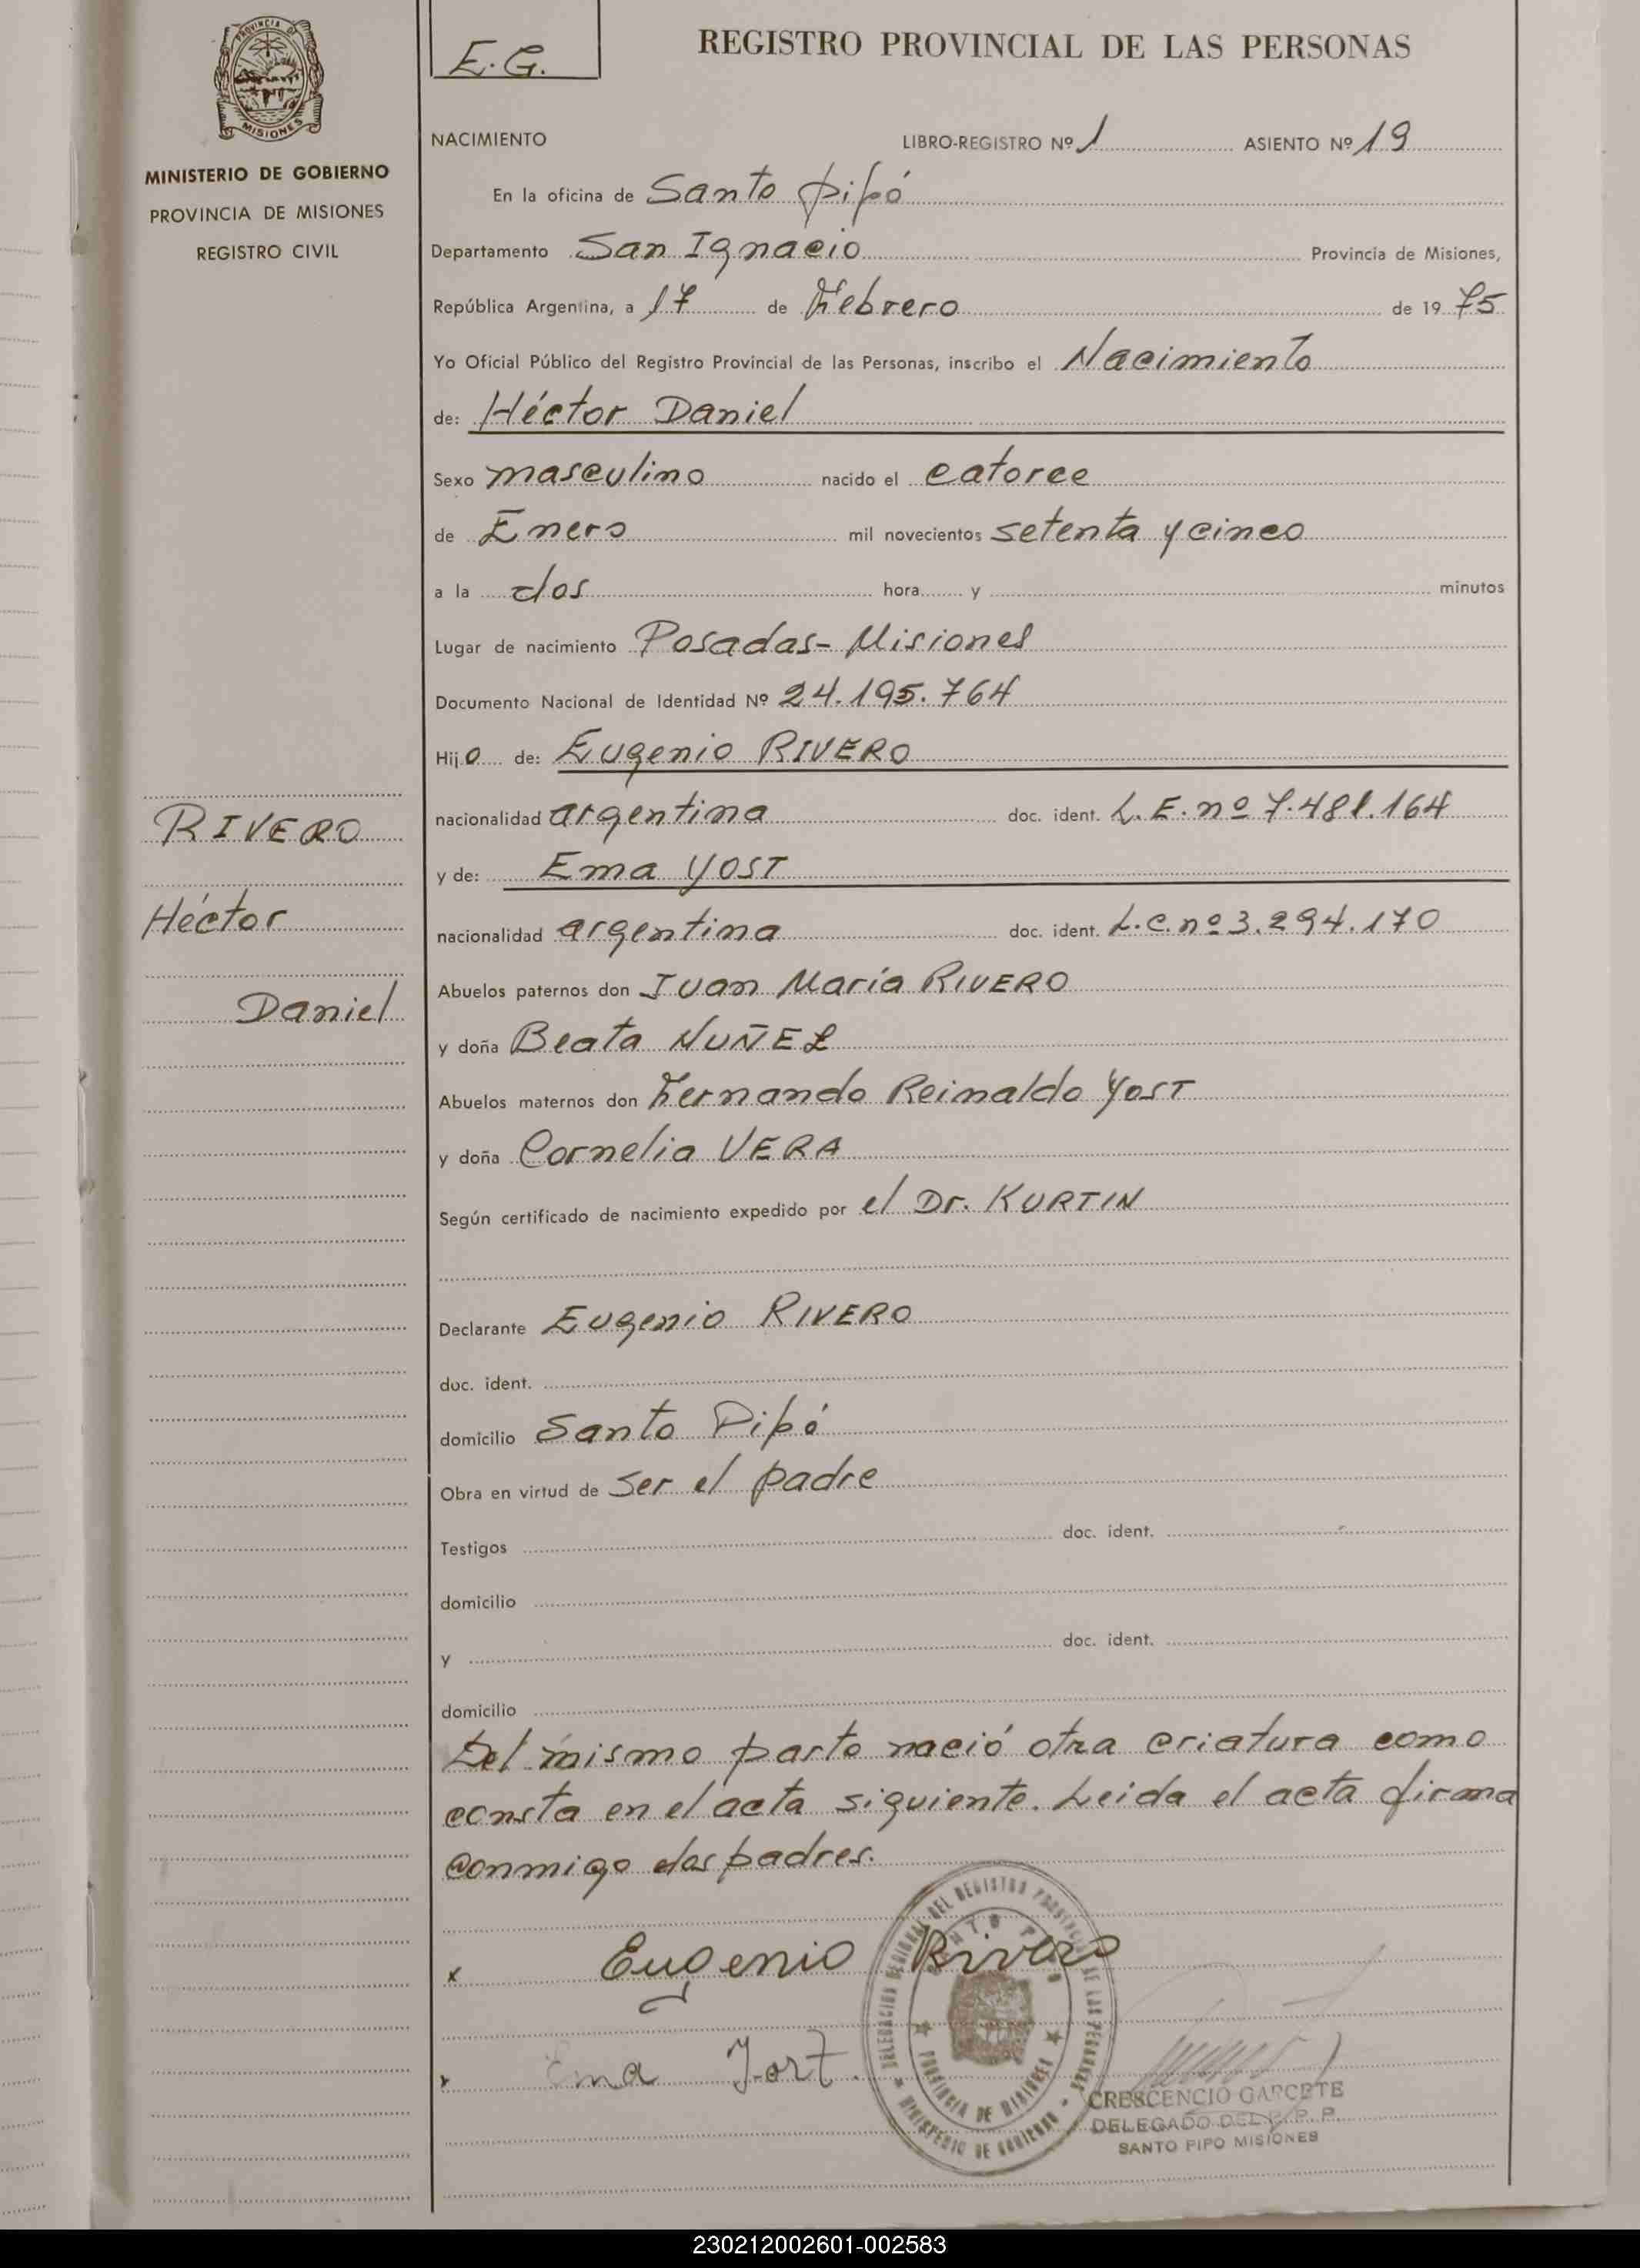 PROVINCIA D
MISIONES
MINISTERIO DE GOBIERNO
PROVINCIA DE MISIONES
REGISTRO CIVIL
RIVERO
Héctor
Daniel
E.G.
REGISTRO PROVINCIAL DE LAS PERSONAS
NACIMIENTO LIBRO-REGISTRO Nº 1 ASIENTO Nº 19
En la oficina de Santo Pipó
Departamento San Ignacio Provincia de Misiones,
República Argentina, a 17 de Febrero de 19 75
Yo Oficial Público del Registro Provincial de las Personas, inscribo el Nacimiento
de: Héctor Daniel
Sexo masculino nacido el catorce
de Enero mil novecientos setenta y cinco
a la dos hora y minutos
Lugar de nacimiento Posadas- Misiones
Documento Nacional de Identidad Nº 24.195.764
Hijo de: Eugenio RIVERO
nacionalidad argentina doc. ident. L.E. nº 7.481.164
y de: Ema YOST
nacionalidad argentina doc. ident. L.C. nº 3.294.170
Abuelos paternos don Juan María RIVERO
y doña Beata NUÑEZ
Abuelos maternos don Fernando Reimaldo YOST
y doña Cornelia VERA
Según certificado de nacimiento expedido por el Dr. KURTIN
Declarante Eugenio RIVERO
doc. ident.
domicilio Santo Pipó
Obra en virtud de ser el padre
Testigos doc. ident.
domicilio
y doc. ident.
domicilio
Del mismo parto nació otra criatura como
consta en el acta siguiente. Leida el acta firma
conmigo los padres.
x Eugenio Rivero
Ema Jort.
DELEGACION REGIONAL DEL REGISTRO PROVINCIAL DE LAS PERSONAS
MINISTERIO DE GOBIERNO
SANTO PIPO
PROVINCIA DE MISIONES
CRESCENCIO GARCETE
DELEGADO DEL R. P. P.
SANTO PIPO MISIONES
230212002601-002583